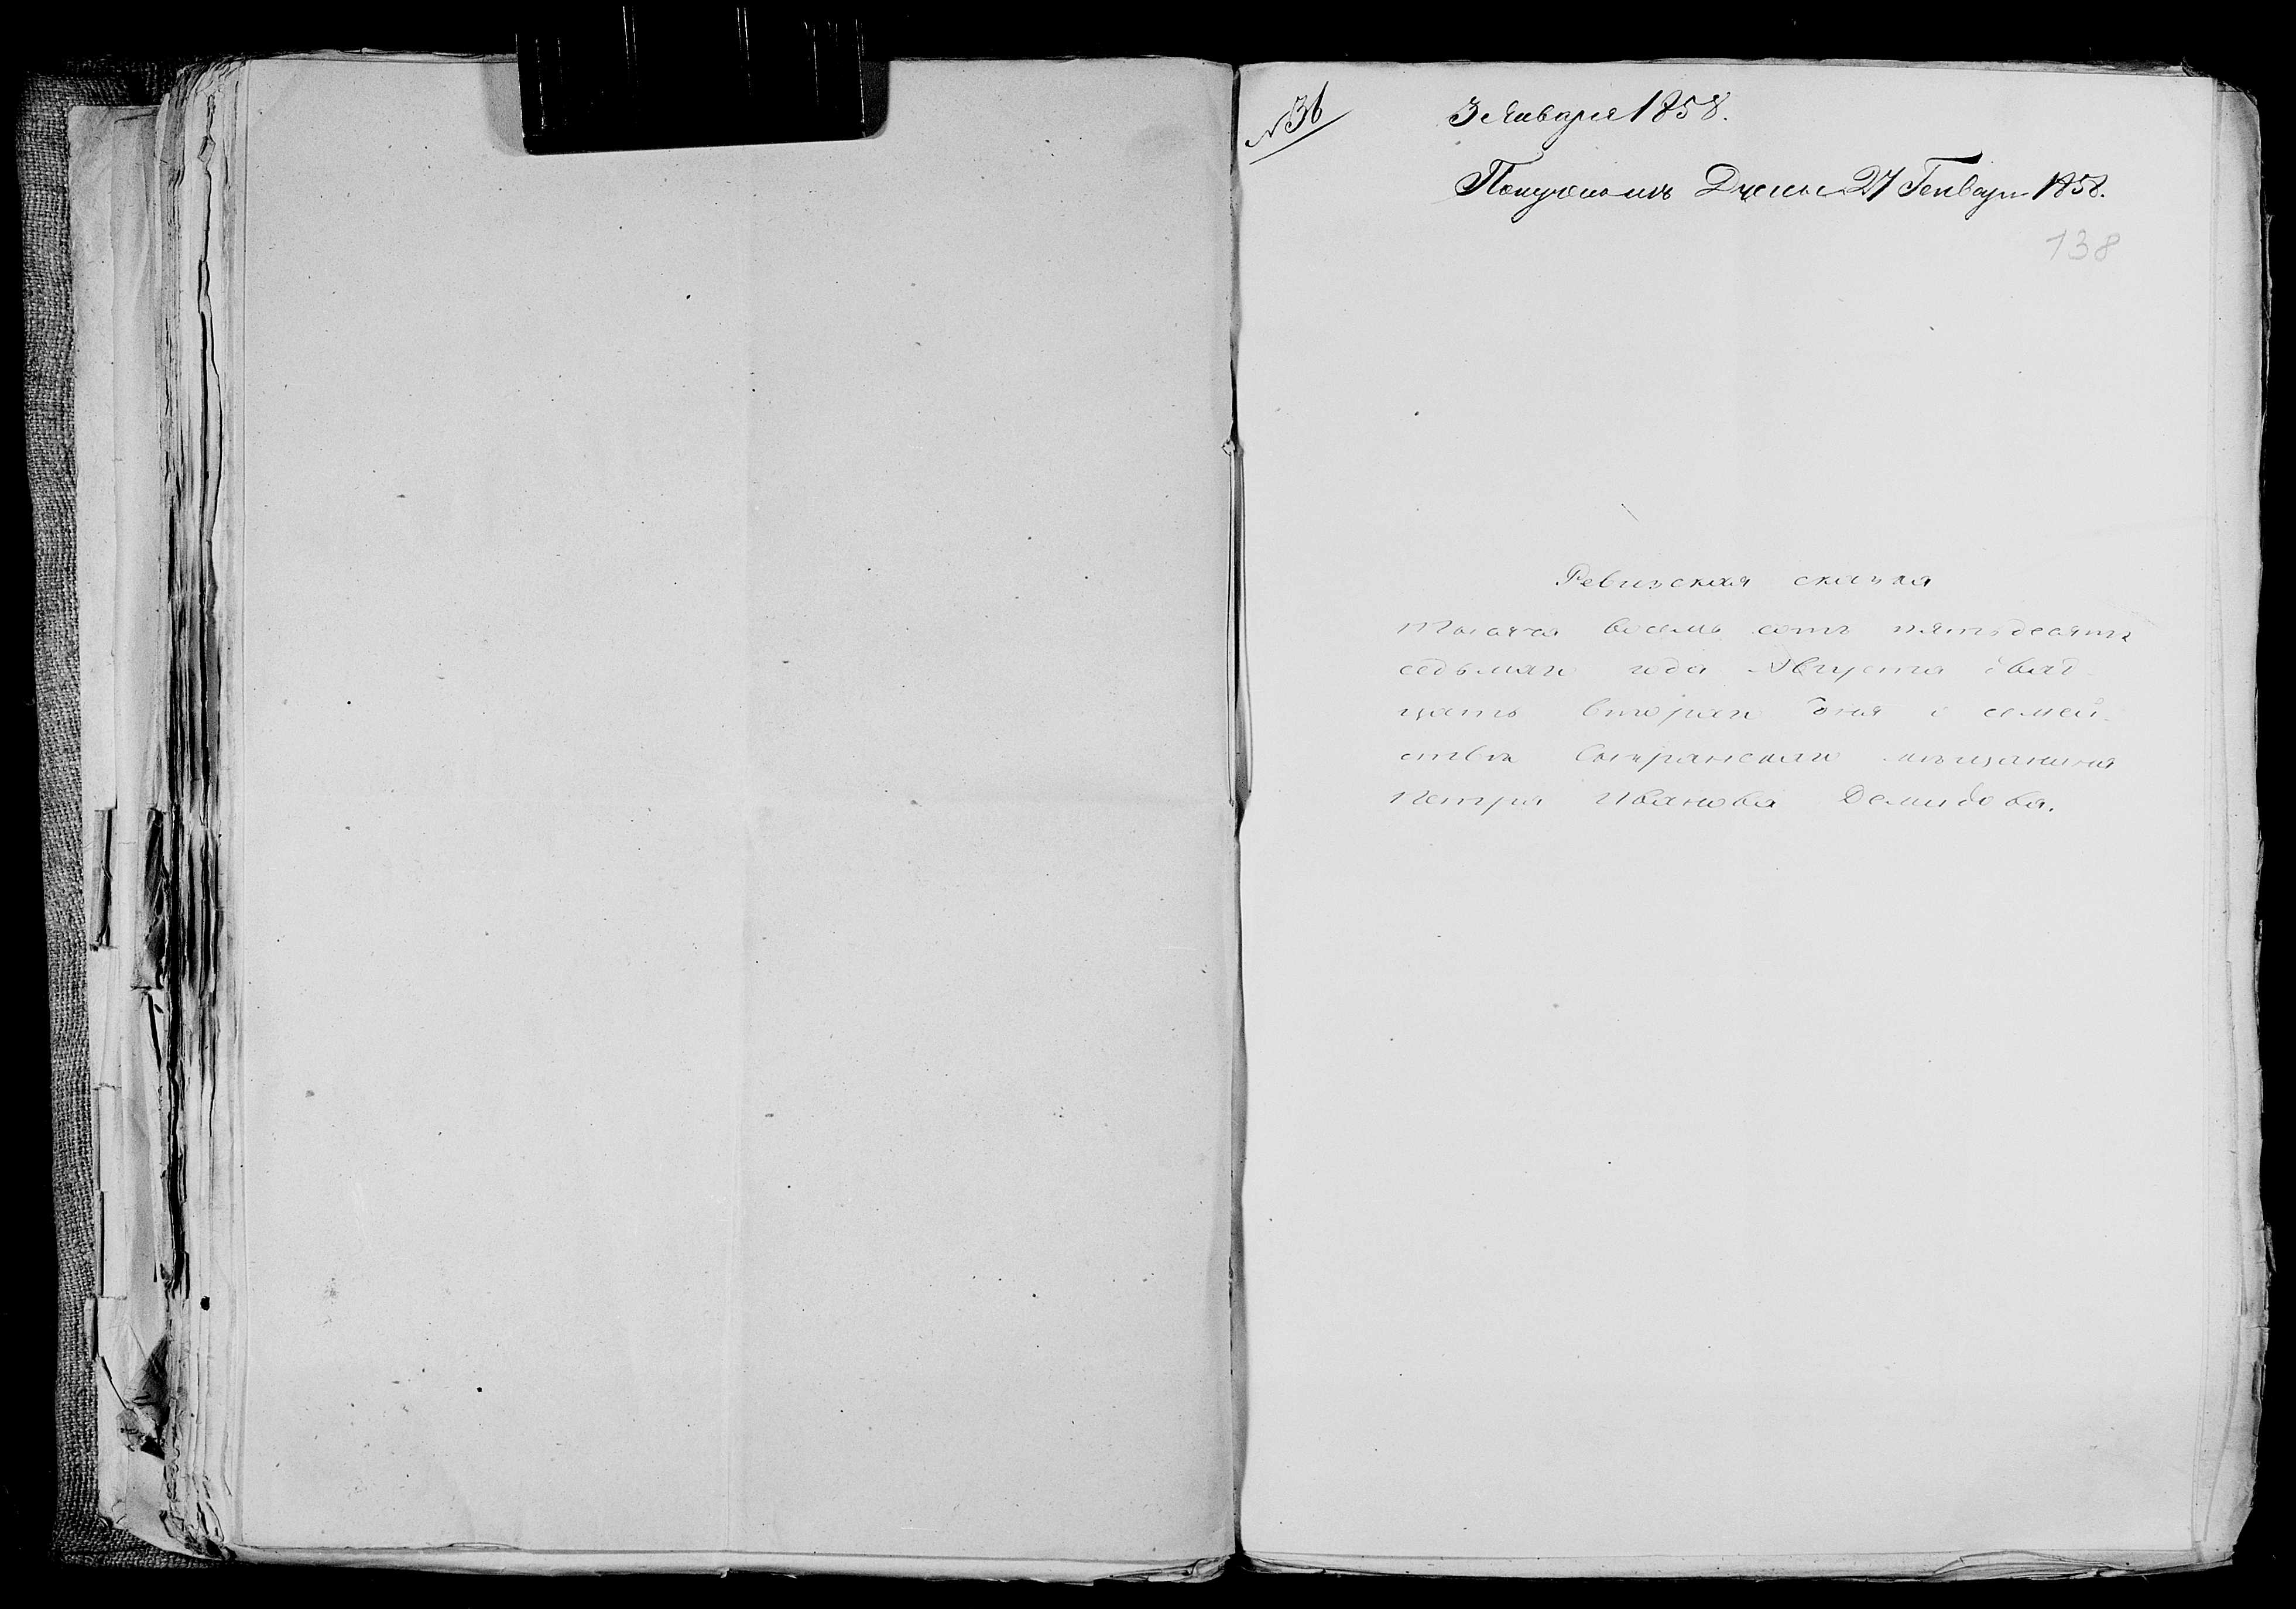 № 36
3 Января 1858.
Получено изъ Думы 27 Генваря 1858.
138
Ревизская сказка
тысяча восемь сотъ пятьдесятъ
седьмаго года Августа двад
цать втораго дня о семей
ствѣ Сызранскаго мѣщанина
Петра Иванова Демидова.